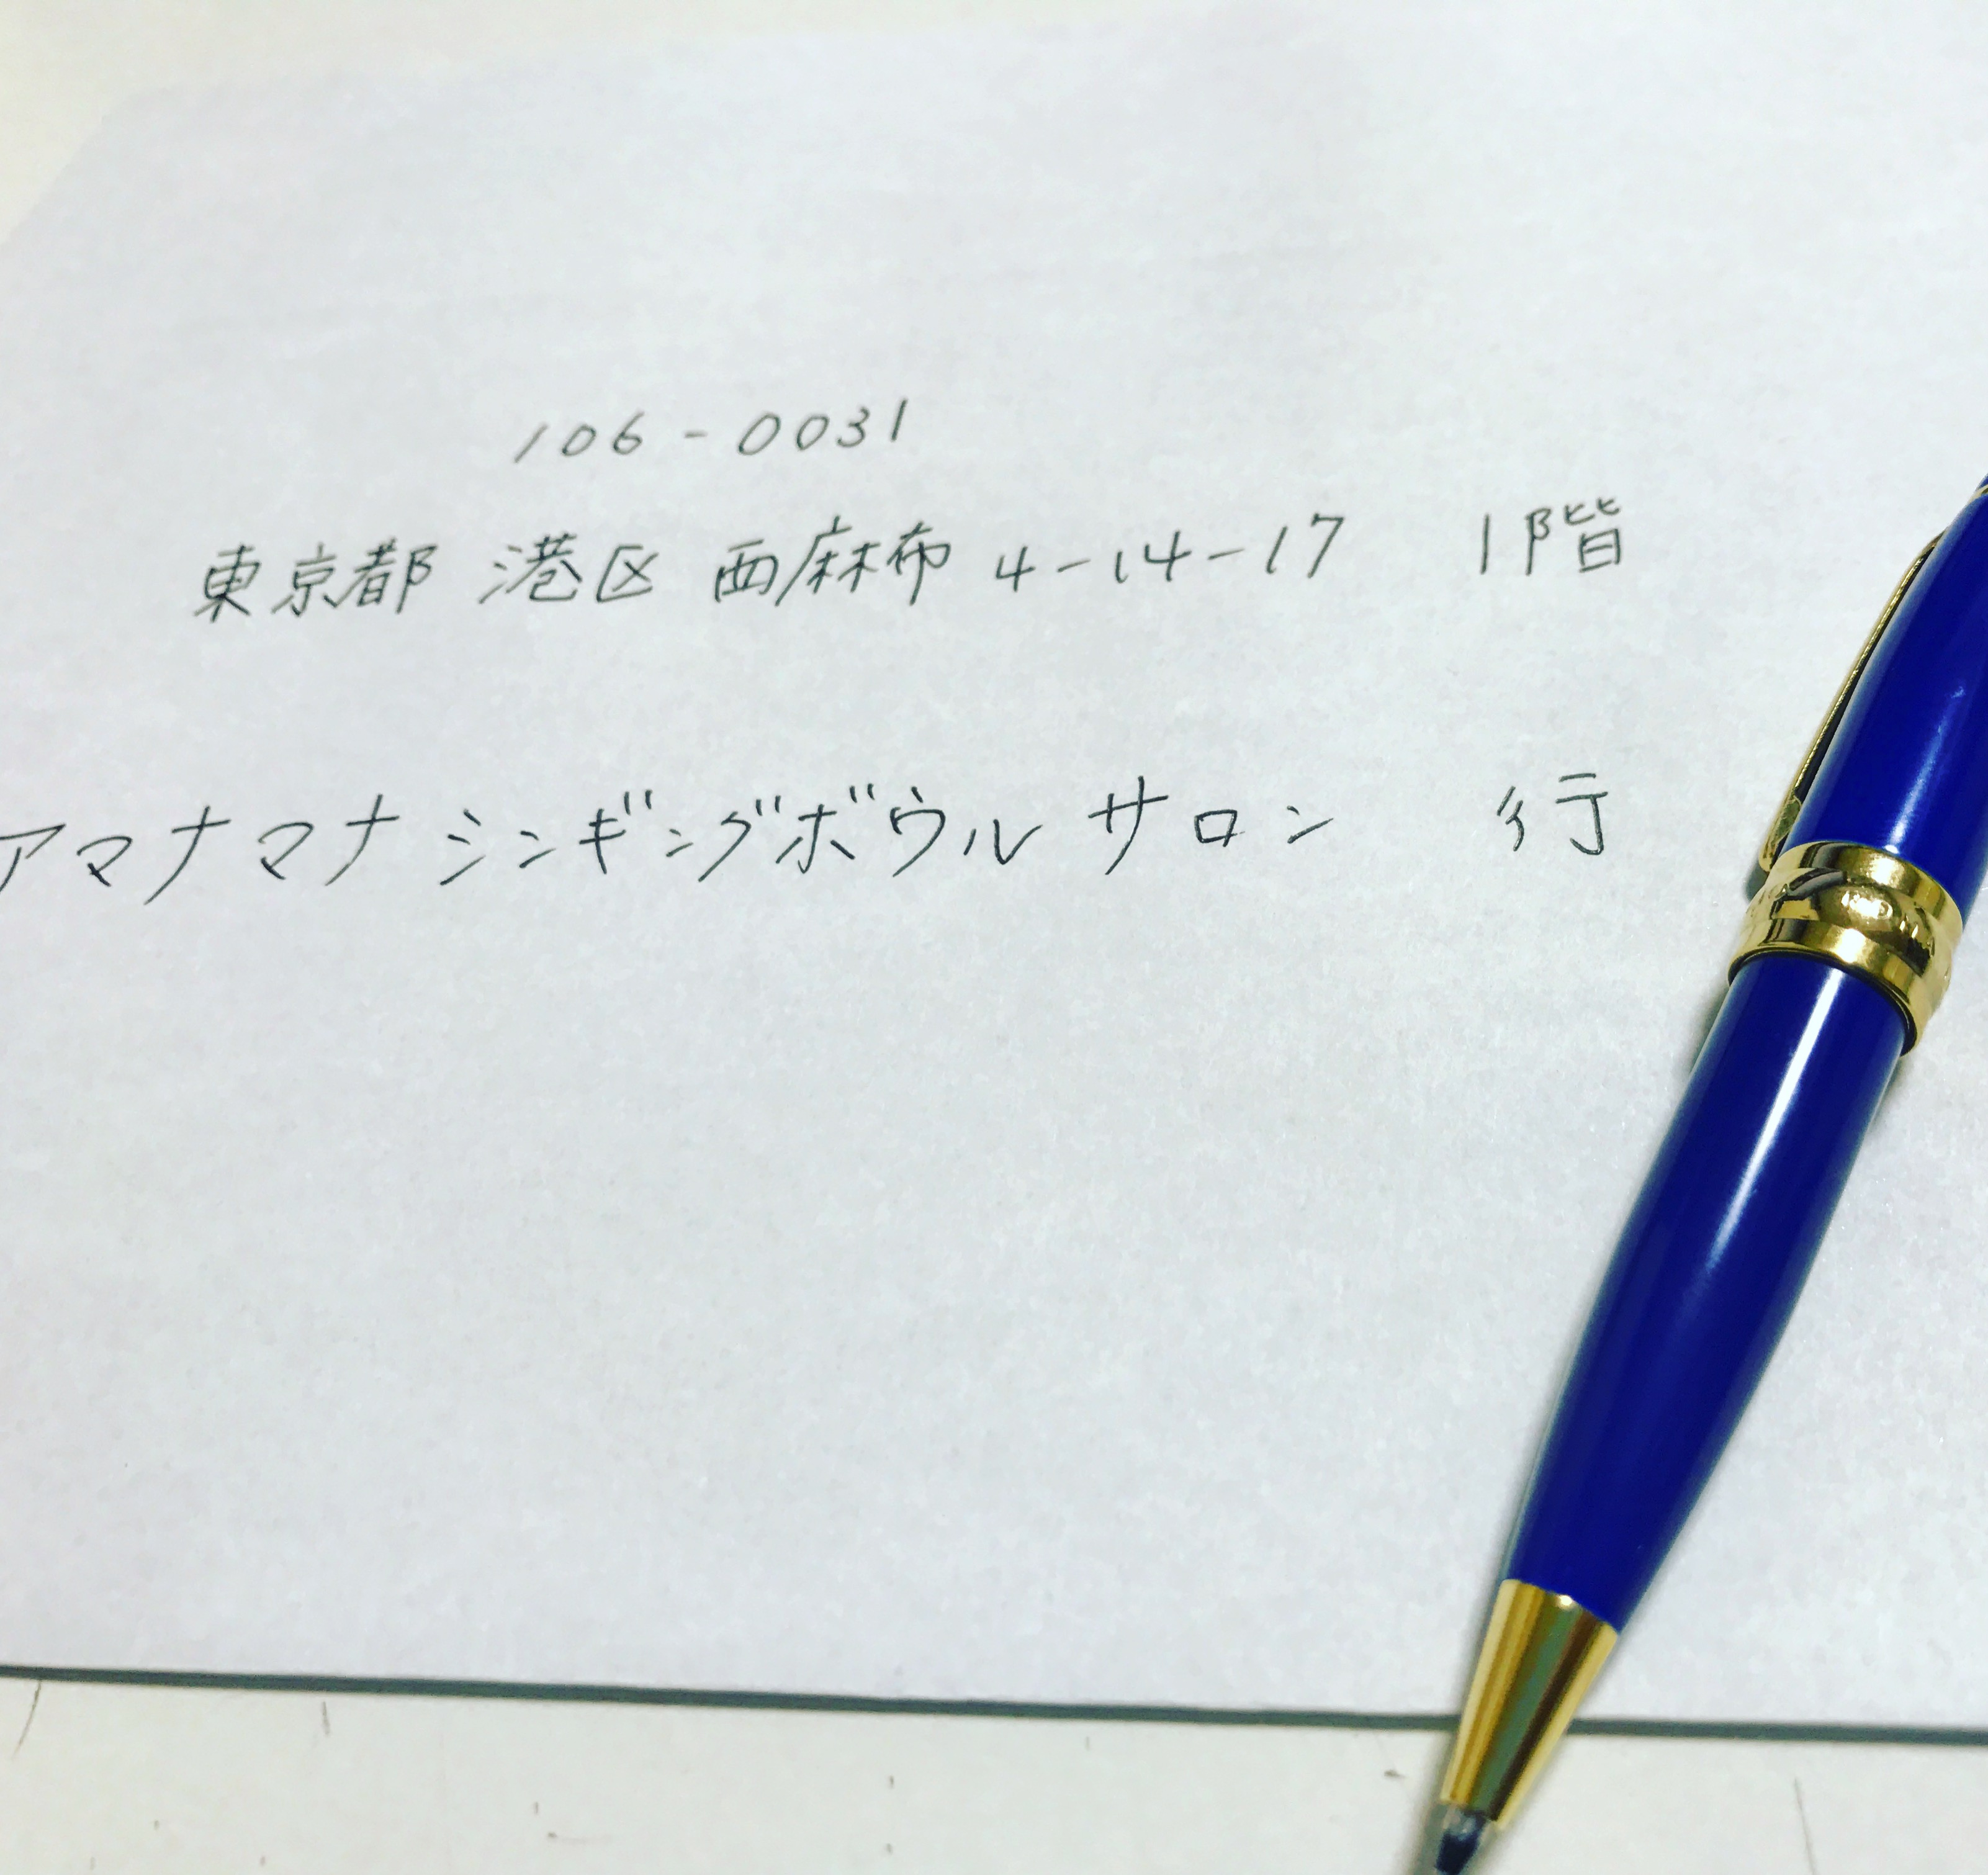 106-0031
東京都 港区 西麻布 4-14-17 1階
アマナマナ シンギングボウル サロン 行